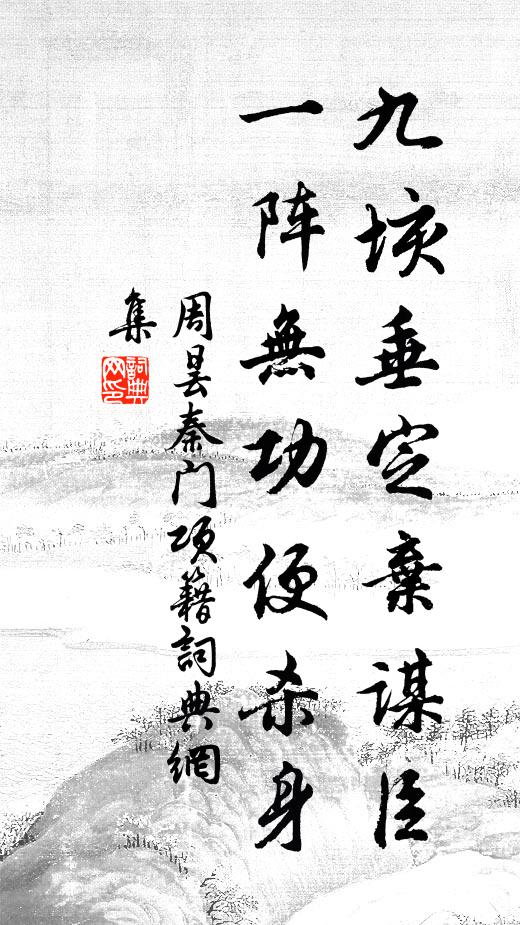 九垓垂定棄謀臣
一阵無功便杀身
周昙秦门项籍詞典網
集
詞典网印